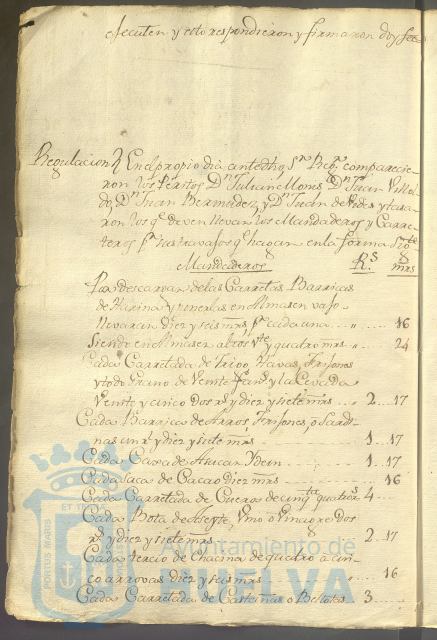 ejecuten y esto respondieron y firmaron doy fee
Regulacion En el propio dia ante dho Sr. comparecie-
ron los Peritos Dn. Julian Mones Dn. Juan
Dn. Juan Bermudez, y Dn. Juan de y tasa-
ron los qe. deven llevar los Mandaderos y Carre-
teros pr. los travajos qe. hagan en la forma sigte.
Mandaderos Rs. & mrs
Por descargar de las Carretas Barricas
de Harina y ponerlas en Almasen vajo
llevaran diez y seis mrs pr. cada una 16
Siendo en Almasen alto vte. y quatro mrs 24
Cada Carretada de Trigo, Havas, Frijones
y todo Grano de Veinte fans. y la Cevada
Veinte y cinco dos rs y diez y siete mrs 2 17
Cada Barrica de Arros, Frijones, o Sardi-
nas un r. y diez y siete mrs 1 17
Cada Caxa de Asucar Idem 1 17
Cada saca de Cacao diez mrs 16
Cada Carretada de Cueros de cinqta. quatro rs 4
Cada Bota de Aseyte, Vino o Vinagre Dos
rs y diez y siete mrs 2 17
Cada tercio de Chacina de quatro a cin-
co arrovas diez y seis mrs 16
Cada Carretada de Castañas o Bellotas 3
Ayuntamiento de
HUELVA
PORTUS MARIS
ET TE